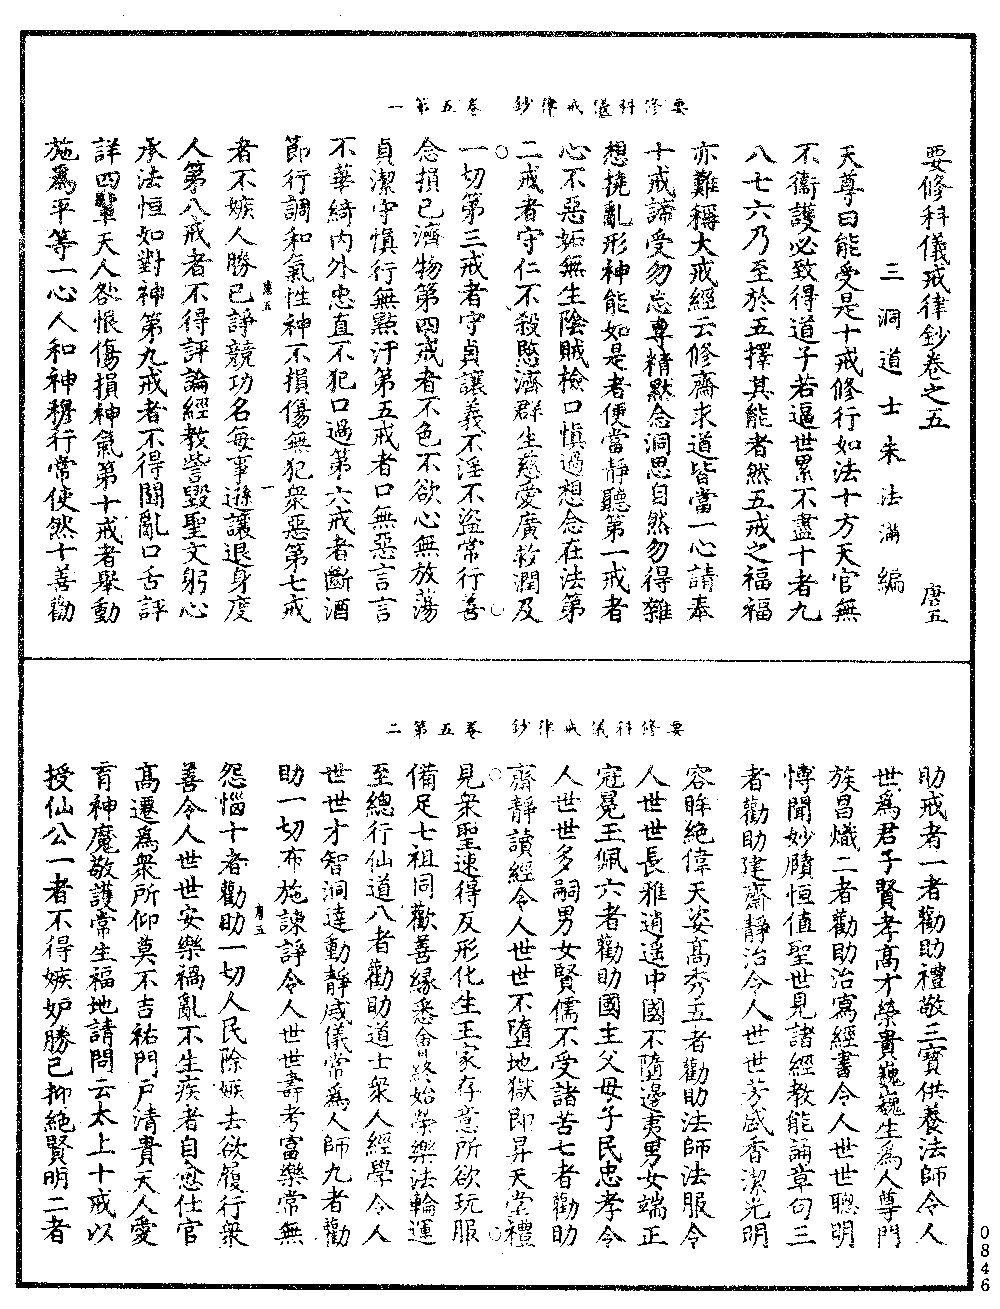 要修科儀戒律鈔 卷五第一
要修科儀戒律鈔卷之五 唐五
三洞道士朱法滿編
天尊曰能受是十戒修行如法十方天官無
不衞護必致得道子若逼世累不盡十者九
八七六乃至於五擇其能者然五戒之福福
亦難稱大戒經云修齋求道皆當一心請奉
十戒諦受勿忘專精默念洞思自然勿得雜
想撓亂形神能如是者便當靜聽第一戒者
心不惡妬無生陰賊檢口慎過想念在法第
二戒者守仁不殺愍濟群生慈愛廣救潤及
一切第三戒者守貞讓義不淫不盜常行善
念損已濟物第四戒者不色不欲心無放蕩
貞潔守慎行無點汙第五戒者口無惡言言
不華綺內外忠直不犯口過第六戒者斷酒
節行調和氣性神不損傷無犯衆惡第七戒
唐五 一
者不嫉人勝已諍競功名每事遜讓退身度
人第八戒者不得評論經教訾毀聖文躬心
承法恒如對神第九戒者不得鬭亂口舌評
詳四輩天人咎恨傷損神氣第十戒者舉動
施爲平等一心人和神穆行常使然十善勸
要修科儀戒律鈔 卷五第二
助戒者一者勸助禮敬三寶供養法師令人
世爲君子賢孝高才榮貴巍巍生爲人尊門
族昌熾二者勸助治寫經書令人世世聰明
愽聞妙賾恒值聖世見諸經教能誦章句三
者勸助建齋靜治令人世世芳盛香潔光明
容眸絕偉天姿高秀五者勸助法師法服令
人世世長雅逍遥中國不隨邊夷男女端正
冠冕玉佩六者勸助國主父母子民忠孝令
人世世多嗣男女賢儒不受諸苦七者勸助
齋靜讀經令人世世不墮地獄即昇天堂禮
見衆聖速得反形化生王家存意所欲玩服
備足七祖同歡善緣悉會終始榮樂法輪運
至總行仙道八者勸助道士衆人經學令人
世世才智洞達動靜威儀常爲人師九者勸
助一切布施諫諍令人世世壽考富樂常無
唐五
怨惱十者勸助一切人民除嫉去欲履行衆
善令人世世安樂禍亂不生疾者自愈仕官
高遷爲衆所仰莫不吉祐門户清貴天人愛
育神魔敬護常生福地請問云太上十戒以
授仙公一者不得嫉妒勝已抑絕賢明二者
0846